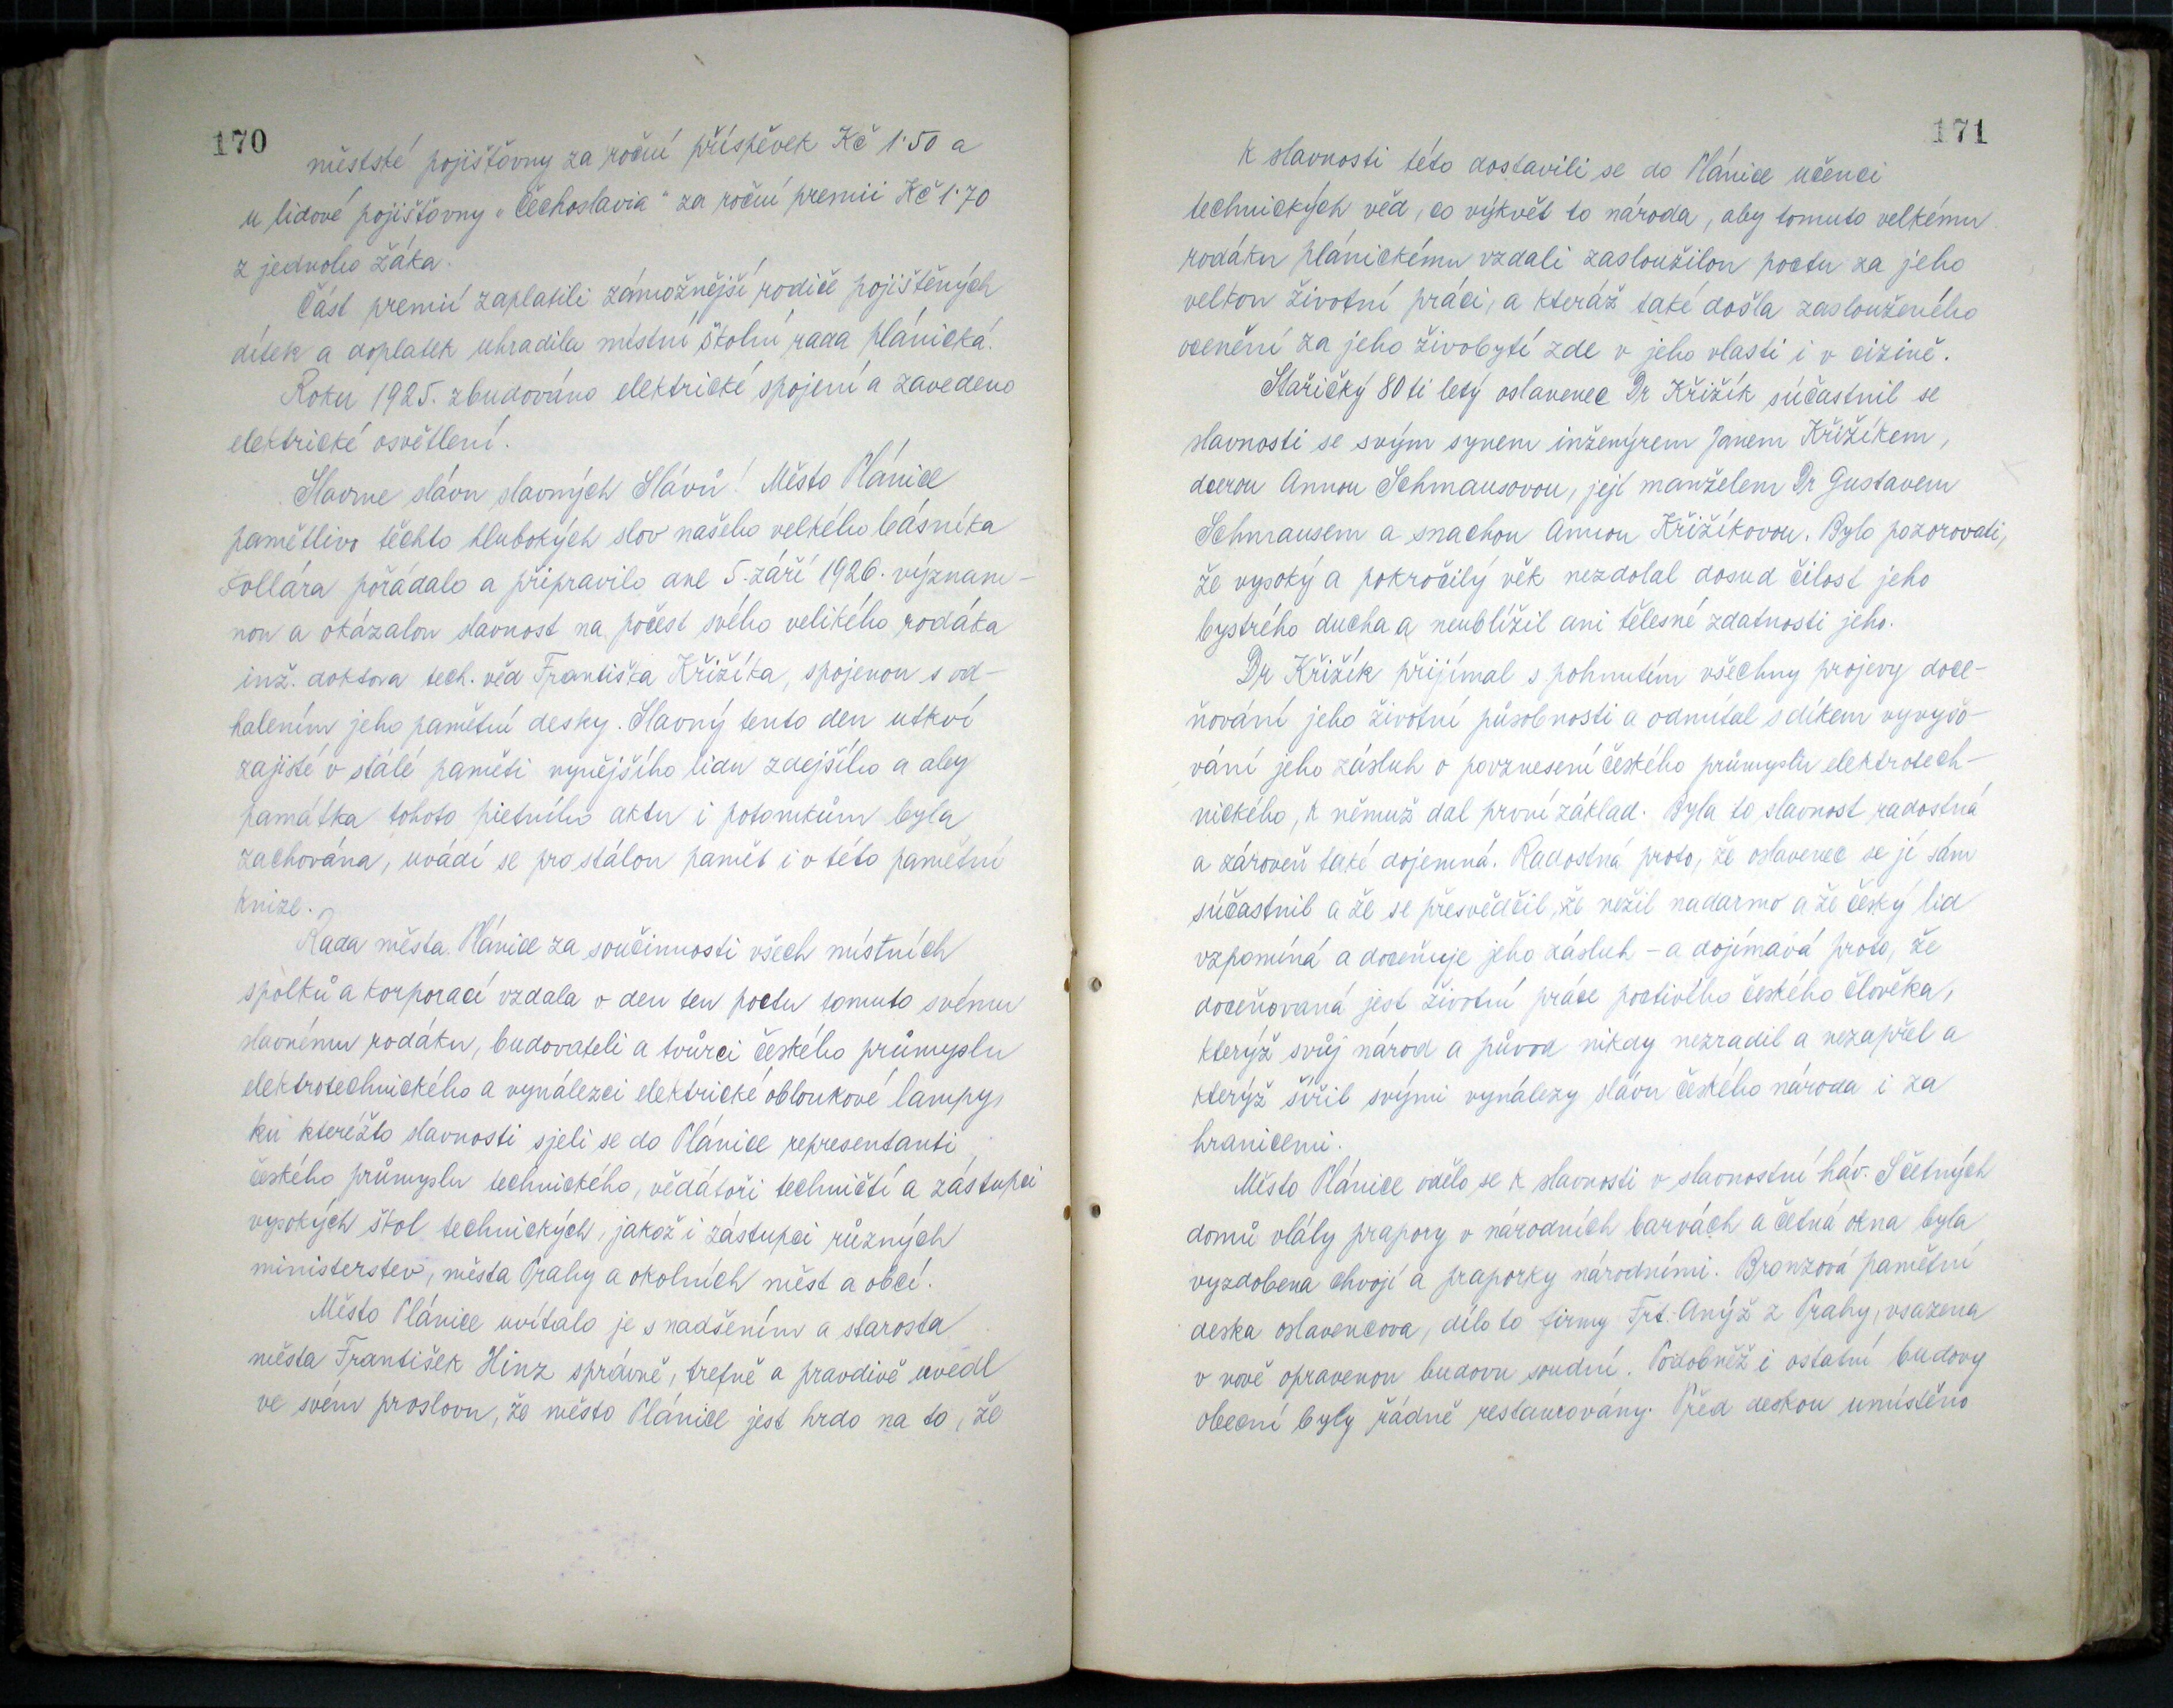 170
městské pojišťovny za roční příspěvek Kč 1·50 a
u lidové pojišťovny „Čechoslavia" za roční premii Kč 1·70
z jednoho žáka.
Část premií zaplatili zámožnější rodiče pojištěných
dítek a doplatek uhradila místní školní rada plánická.
Roku 1925. zbudováno elektrické spojení a zavedeno
elektrické osvětlení.
Slavme slávu slavných Slávů! Město Plánice
pamětlivo těchto hlubokých slov našeho velkého básníka
Kollára pořádalo a připravilo dne 5. září 1926. význam-
nou a okázalou slavnost na počest svého velikého rodáka
inž. doktora tech. věd Františka Křižíka, spojenou s od-
halením jeho pamětní desky. Slavný tento den utkví
zajisté v stálé paměti nynějšího lidu zdejšího a aby
památka tohoto pietního aktu i potomkům byla
zachována, uvádí se pro stálou paměť i v této pamětní
knize.
Rada města Plánice za součinnosti všech místních
spolků a korporací vzdala v den ten poctu tomuto svému
slavnému rodáku, budovateli a tvůrci českého průmyslu
elektrotechnického a vynálezci elektrické obloukové lampy,
ku kteréžto slavnosti sjeli se do Plánice representanti
českého průmyslu technického, vědátoři techničtí a zástupci
vysokých škol technických, jakož i zástupci různých
ministerstev, města Prahy a okolních měst a obcí.
Město Plánice uvítalo je s nadšením a starosta
města František Hinz správně, trefně a pravdivě uvedl
ve svém proslovu, že město Plánice jest hrdo na to, že
171
k slavnosti této dostavili se do Plánice učenci
technických věd, co výkvět to národa, aby tomuto velkému
rodáku plánickému vzdali zasloužilou poctu za jeho
velkou životní práci, a kteráž také došla zaslouženého
ocenění za jeho živobytí zde v jeho vlasti i v cizině.
Stařičký 80 ti letý oslavenec Dr Křižík súčastnil se
slavnosti se svým synem inženýrem Janem Křižíkem,
dcerou Annou Schmausovou, její manželem Dr Gustavem
Schmausem a snachou Annou Křižíkovou. Bylo pozorovati,
že vysoký a pokročilý věk nezdolal dosud čilost jeho
bystrého ducha a neublížil ani tělesné zdatnosti jeho.
Dr Křižík přijímal s pohnutím všechny projevy doce-
ňování jeho životní působnosti a odmítal s díkem vyvyšo-
vání jeho zásluh o povznesení českého průmyslu elektrotech-
nického, k němuž dal první základ. Byla to slavnost radostná
a zároveň také dojemná. Radostná proto, že oslavenec se jí sám
súčastnil a že se přesvědčil, že nežil nadarmo a že český lid
vzpomíná a doceňuje jeho zásluh – a dojímavá proto, že
doceňovaná jest životní práce poctivého českého člověka,
kterýž svůj národ a původ nikdy nezradil a nezapřel a
kterýž šířil svými vynálezy slávu českého národa i za
hranicemi.
Město Plánice odělo se k slavnosti v slavnostní háv. S četných
domů vlály prapory v národních barvách a četná okna byla
vyzdobena chvojí a praporky národními. Bronzová pamětní
deska oslavencova, dílo to firmy Frt. Anýž z Prahy, vsazena
v nově opravenou budovu soudní. Podobněž i ostatní budovy
obecní byly řádně restaurovány. Před deskou umístěno